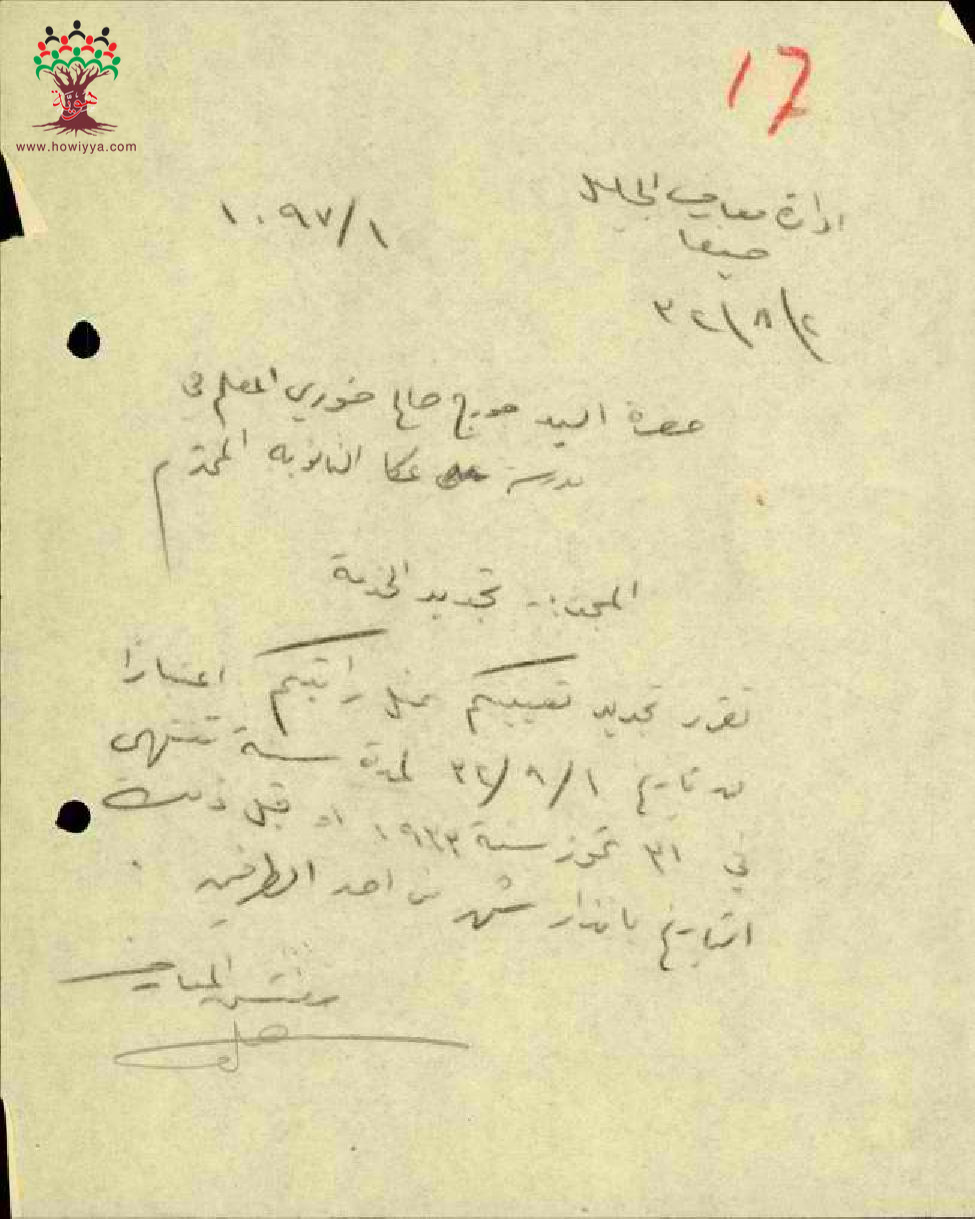 هوية
www.howiyya.com
17
ادارة معارف الجليل
١٠٩٧/١
حيفا
٣٢/٨/٢
حضرة السيد جورج صالح خوري المعلم في
مدرسة عكا الثانوية المحترم
المبحث :- تجديد الخدمة
تقرر تجديد تعيينكم بمثل راتبكم اعتبارا
من تاريخ ٣٢/٨/١ لمدة سنة تنتهي
في ٣١ تموز سنة ١٩٣٣ او قبل ذلك
التاريخ بانذار شهر من احد الطرفين .
مفتش المعارف